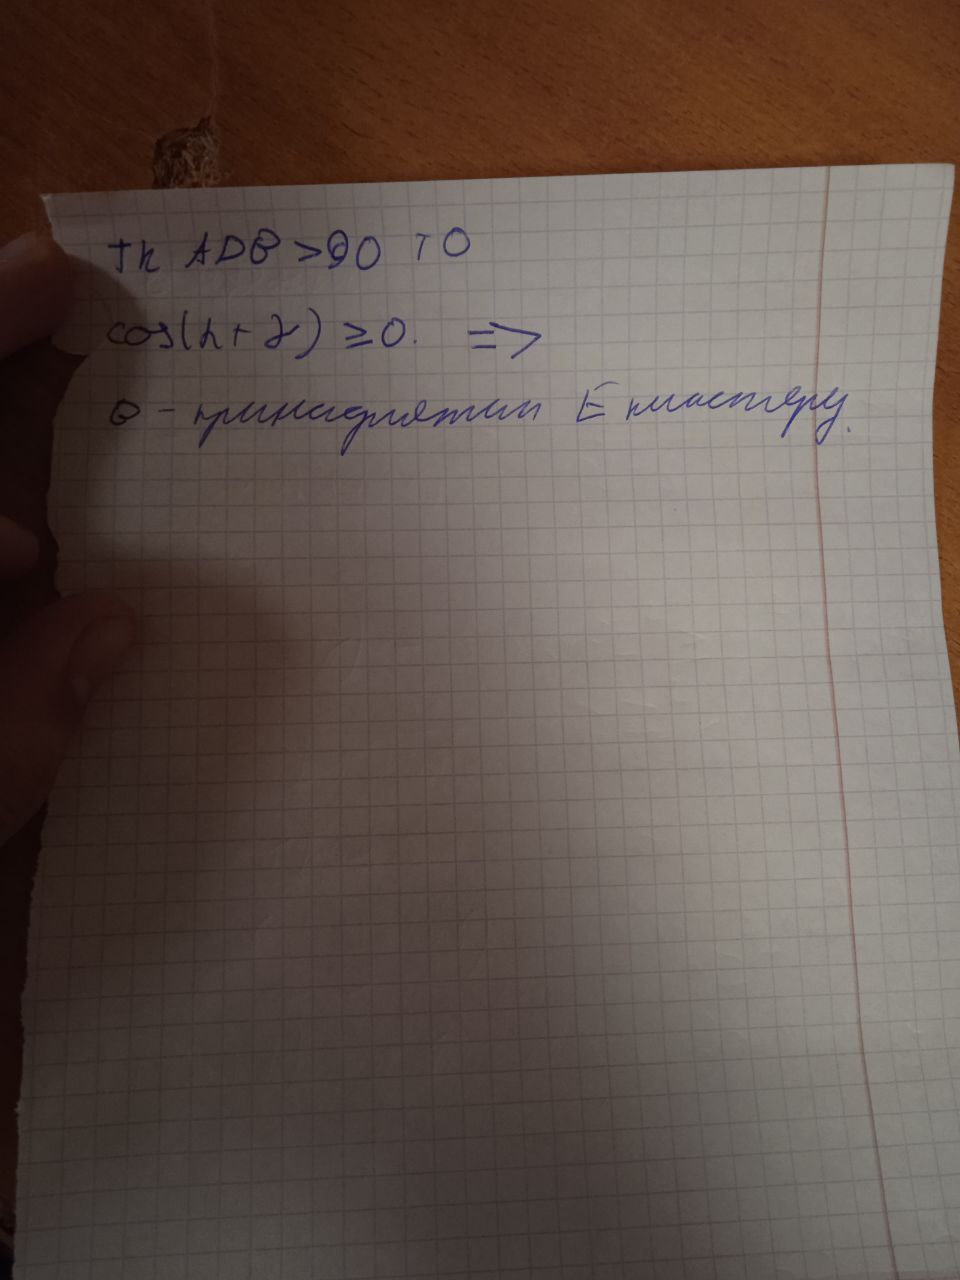 тк ADB > 90 то
cos(α + γ) ≥ 0. =>
θ - принадлежит E кластеру.